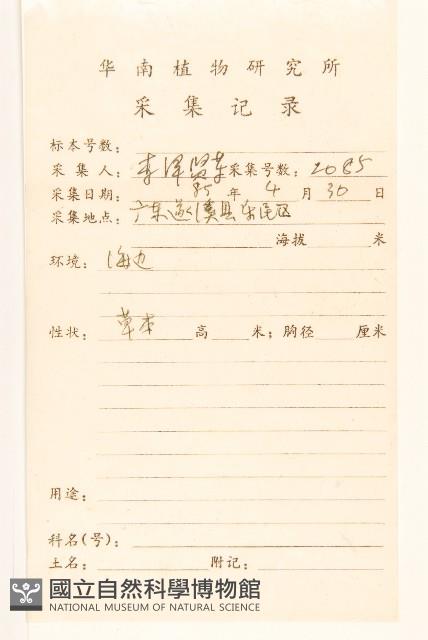 华南植物研究所
采集记录
标本号数：
采集人：李泽贤等 采集号数：2085
采集日期：85年4月30日
采集地点：广东遂溪县东区
海拔 米
环境：海边
性状：草本 高 米；胸径 厘米
用途：
科名(号)：
土名： 附记：
國立自然科學博物館
NATIONAL MUSEUM OF NATURAL SCIENCE